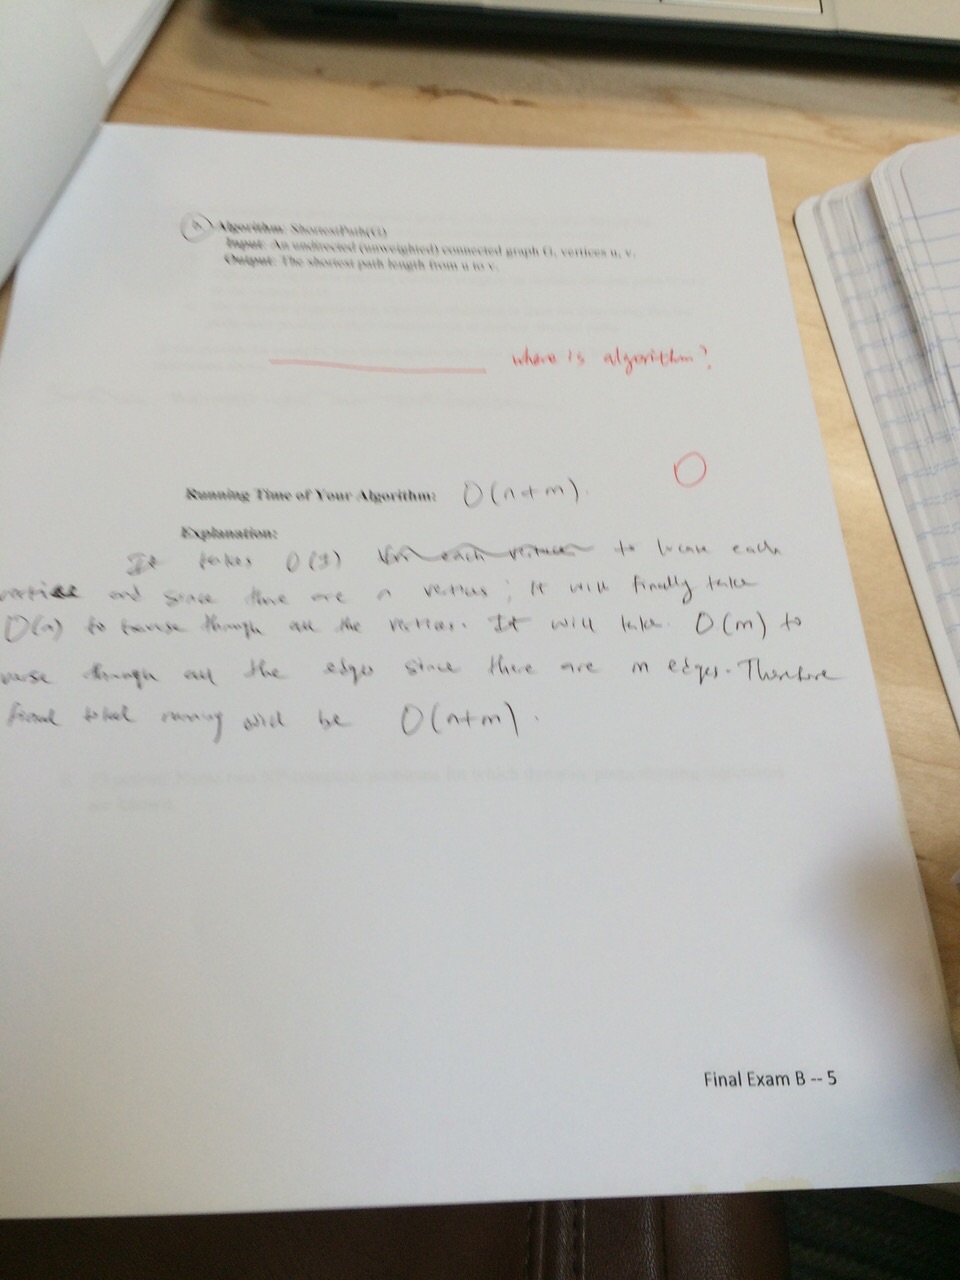 Algorithm: ShortestPath(G)
Input: An undirected (unweighted) connected graph G, vertices u, v.
Output: The shortest path length from u to v.
where is algorithm?
0
Running Time of Your Algorithm: O(n+m).
Explanation:
It takes O(1) for each vertices to locate each
and since there are n vertices; It will finally take
O(n) to through all the vertices. It will take O(m) to
through all the edges since there are m edges. Therefore
final total running will be O(n+m).
Final Exam B -- 5